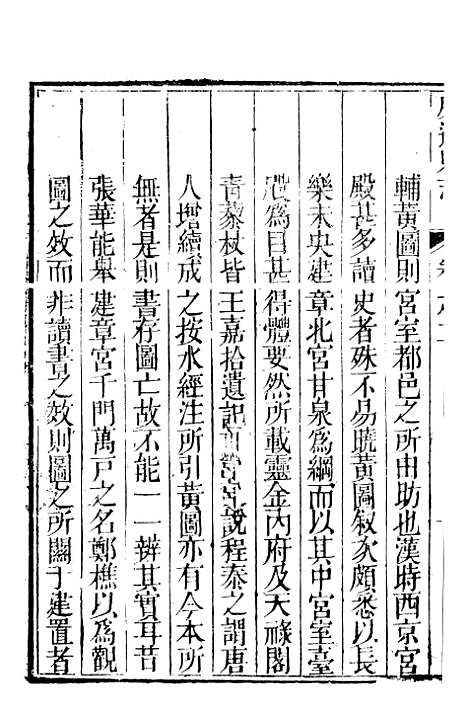 輔黃圖則宮室都邑之所由昉也漢時西京宮
殿甚多讀史者殊不易曉黃圖叙次頗悉以長
樂未央建章北宮甘泉爲綱而以其中宮室臺
池爲目甚得體要然所載靈金內府及天祿閣
青藜杖皆王嘉拾遺記非常說程泰之謂唐
人增續成之按水經注所引黃圖亦有今本所
無者是則書存圖亡故不能一一辨其實耳昔
張華能舉建章宮千門萬戶之名鄭樵以爲觀
圖之效而非讀書之效則圖之所關于建置者